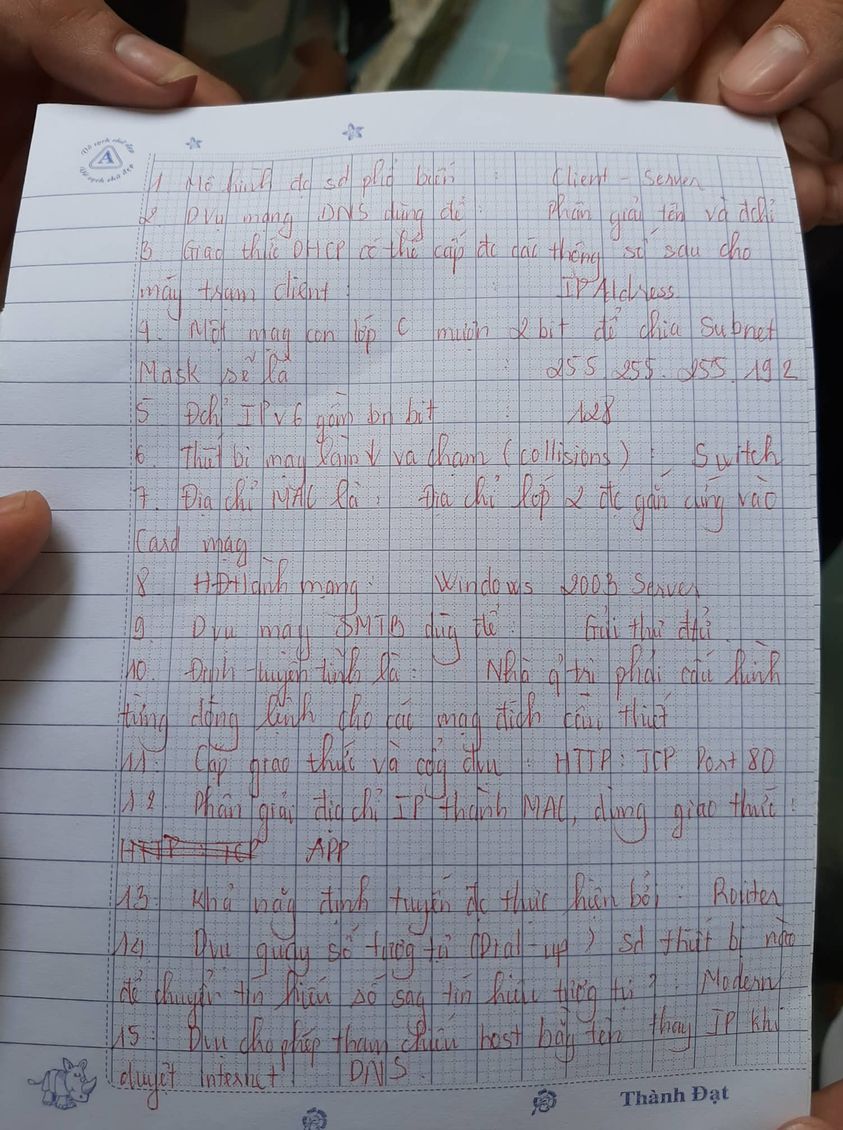 1 Mô hình đc sd phổ biến : Client - Server
2. Dvụ mạng DNS dùng để : Phân giải tên và đchỉ
3 Giao thức DHCP có thể cấp đc các thông số sau cho
máy trạm client : IP Address
4. Một mạg con lớp C mượn 2 bit để chia Subnet
Mask sẽ là : 255. 255. 255. 192
5 Đchỉ IPv6 gồm bn bit : 128
6. Thiết bị mạg làm ↓ va chạm (collisions) : Switch
7. Địa chỉ MAC là : Địa chỉ lớp 2 đc gắn cứng vào
Card mạg
8 HĐHành mạng : Windows 2003 Server
9. Dvụ mạg dùg để : Gửi thư đtử
10. Định tuyến tĩnh là : Nhà qtrị phải cấu hình
từng dòng lệnh cho các mạg đích cần thiết
11. Cặp giao thức và cổg dvụ : HTTP : TCP Port 80
12. Phân giải địa chỉ IP thành MAC, dùng giao thức :
13. Khả năg định tuyến đc thực hiện bởi : Router
14. Dvụ quay số tươg tự (Dial-up) sd thiết bị nào
để chuyển tín hiệu số sag tín hiệu tươg tự ? : Modern
15. Dvụ cho phép tham chiếu host bằg tên thay IP khi
duyệt internet DNS.
Thành Đạt